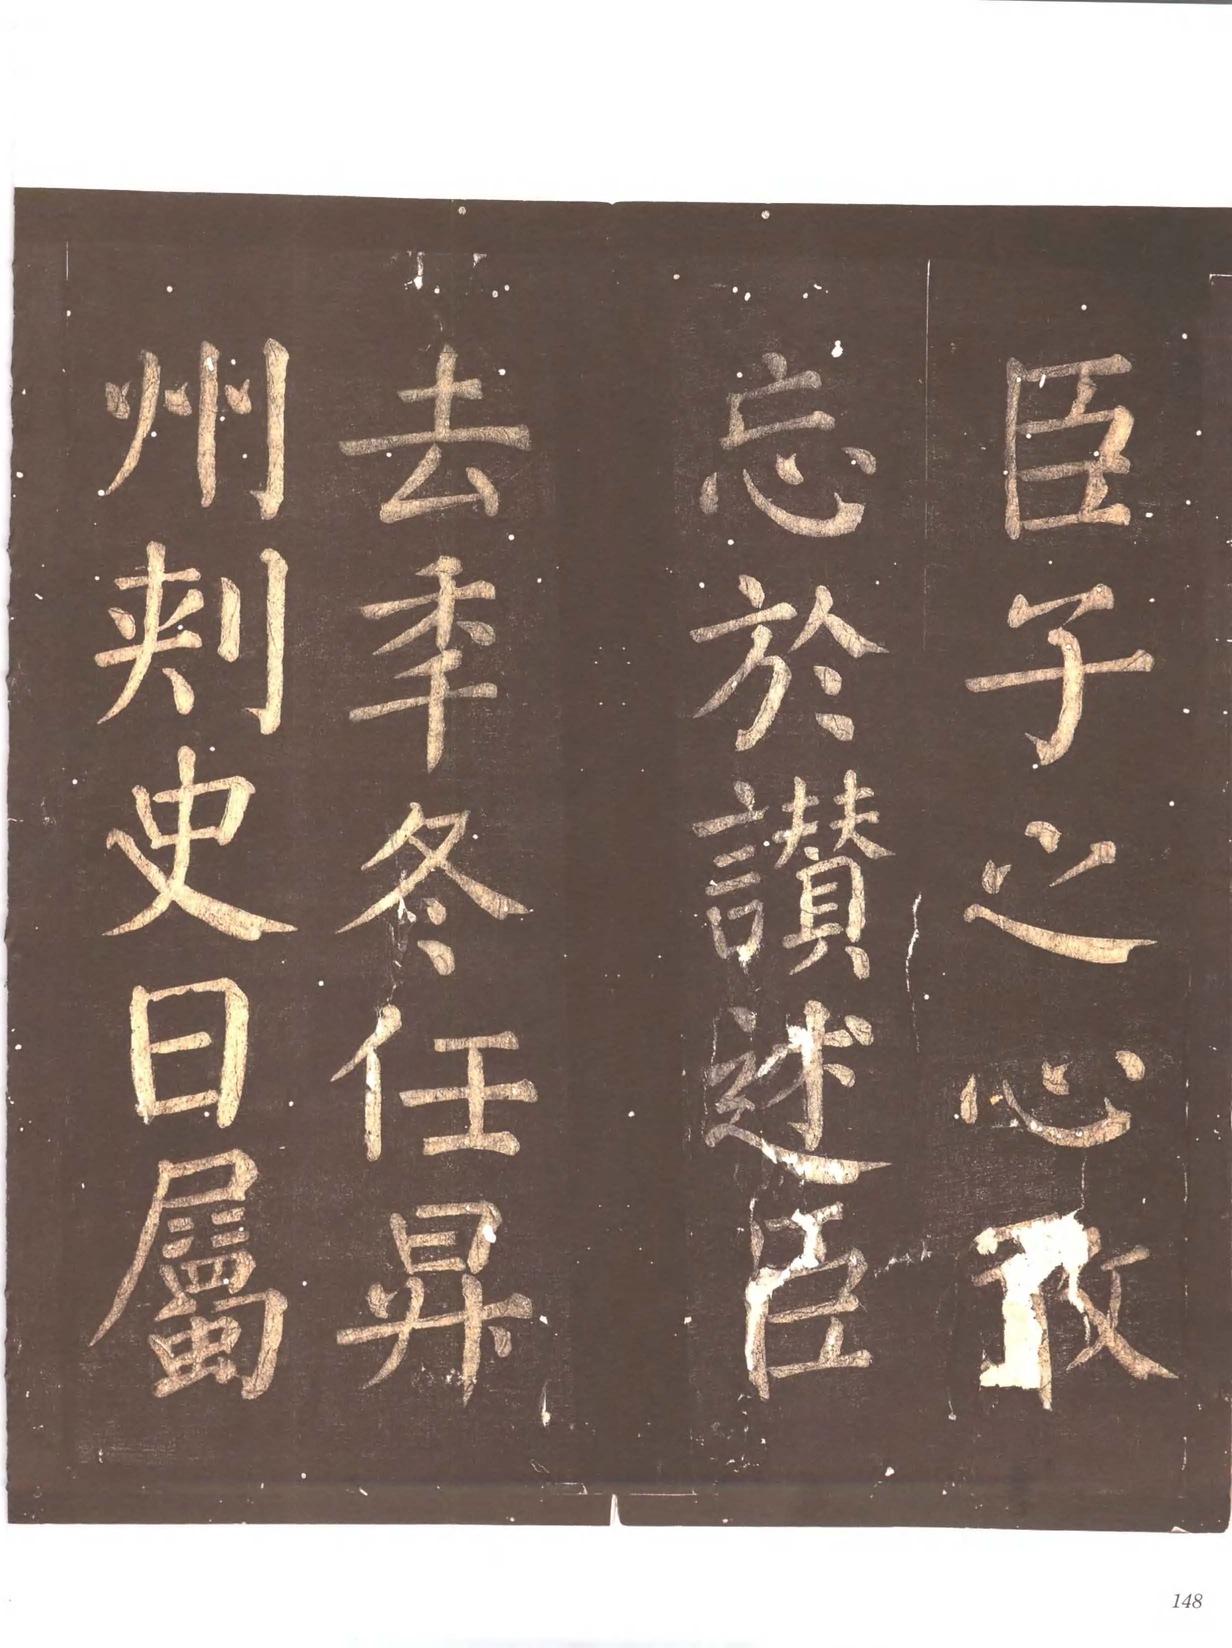 臣子之心敢
忘於讃述臣
去季冬任昇
州刾史日屬
148